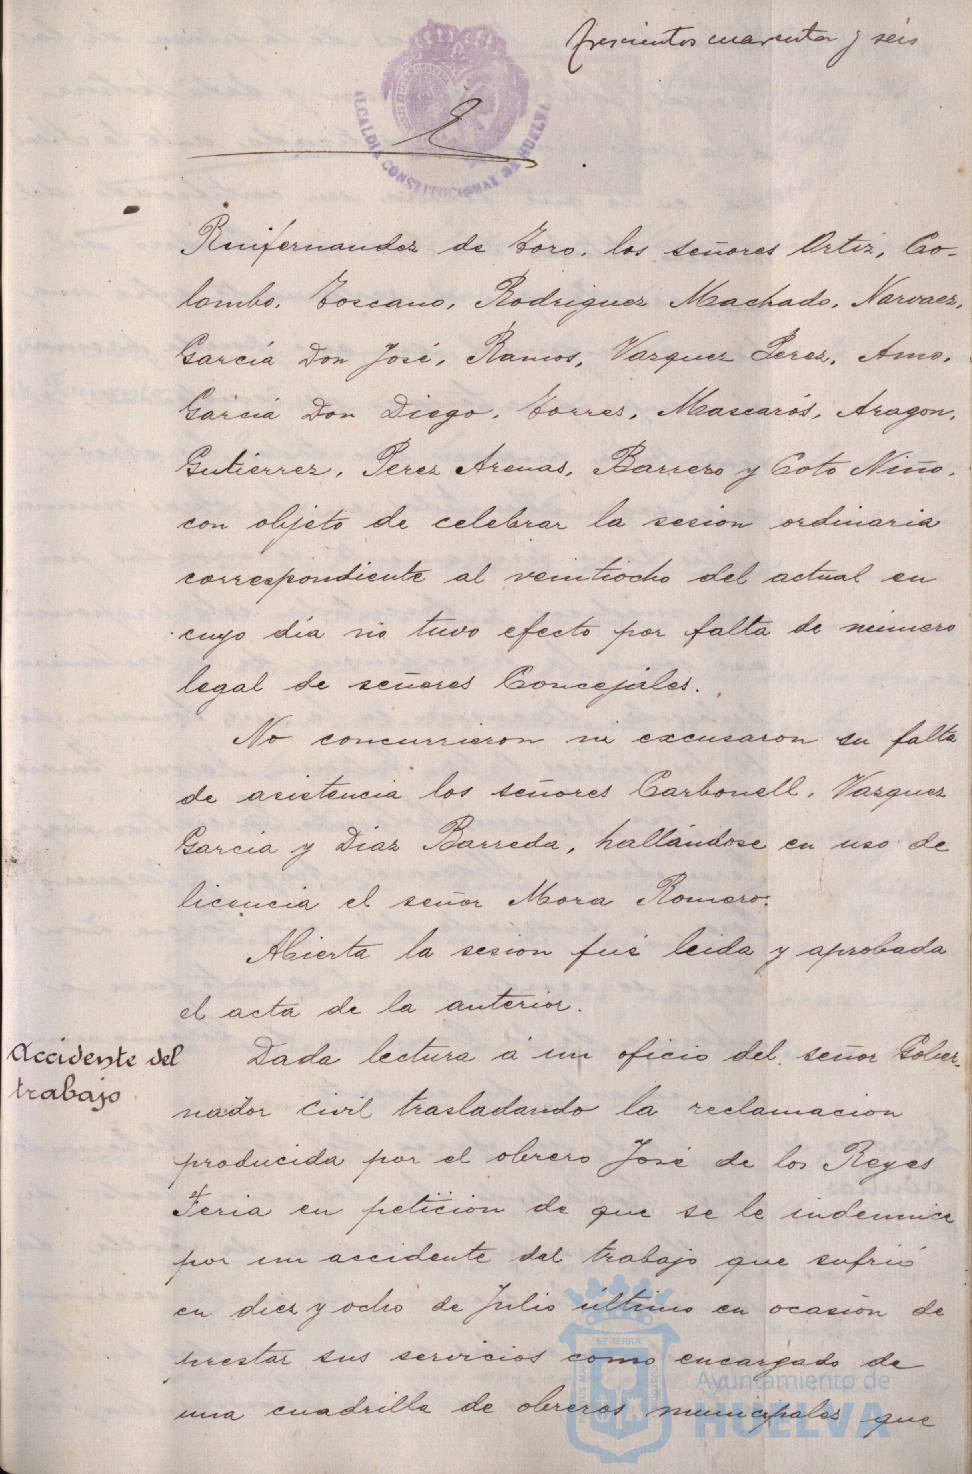 trescientos cuarenta y seis
ALCALDIA CONSTITUCIONAL DE HUELVA
Ruifernandez de Toro, los señores Ortiz, Co-
lombo, Toscano, Rodriguez Machado, Narvaez,
García Don José, Ramos, Vazquez Perez, Amo,
García Don Diego, Torres, Mascarós, Aragon,
Gutiérrez, Perez Arenas, Barrero y Coto Niño,
con objeto de celebrar la sesion ordinaria
correspondiente al veintiocho del actual en
cuyo día no tuvo efecto por falta de número
legal de señores Concejales.
No concurrieron ni excusaron su falta
de asistencia los señores Carbonell, Vazquez
García y Díaz Barreda, hallándose en uso de
licencia el señor Mora Romero.
Abierta la sesion fué leida y aprobada
el acta de la anterior.
Accidente del
trabajo
Dada lectura á un oficio del señor Gober-
nador civil trasladando la reclamacion
producida por el obrero José de los Reyes
Feria en petición de que se le indemnice
por un accidente del trabajo que sufrió
en diez y ocho de Julio último en ocasión de
prestar sus servicios como encargado de
una cuadrilla de obreros municipales que
Ayuntamiento de
HUELVA